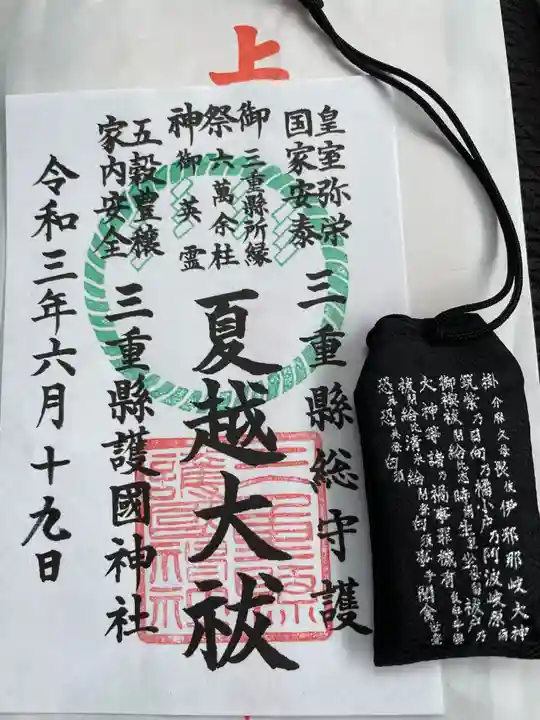 上
皇室弥栄
国家安泰
三重縣総守護
御祭神
三重縣所縁
六萬余柱
御英霊
夏越大祓
五穀豊穣
家内安全
三重縣護國神社
令和三年六月十九日
掛介麻久母畏伎伊邪那岐大神
筑紫乃日向乃橘小戸乃阿波岐原爾
御禊祓閉給比志時爾生里坐世留祓戸乃
大神等諸乃禍事罪穢有良牟乎婆
祓閉給比清米給閉登白須事乎聞食世登
恐美恐美母白須